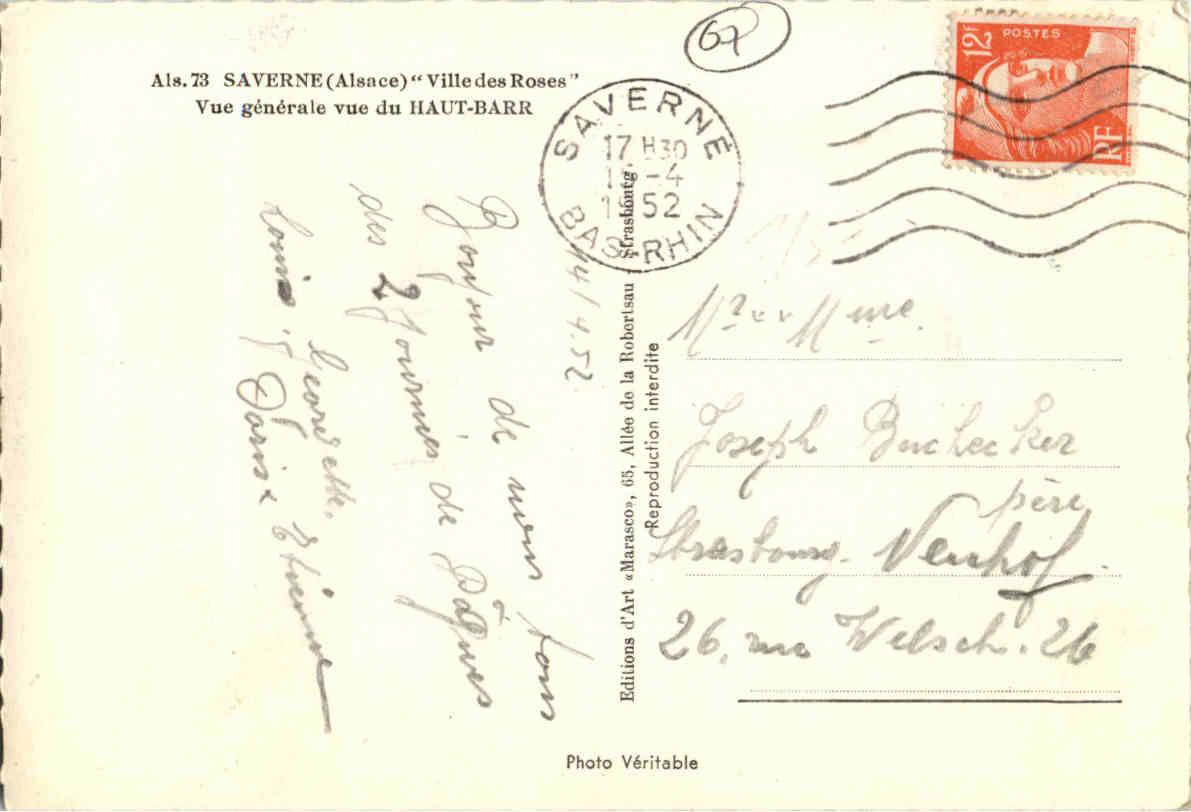 67
Als. 73 SAVERNE (Alsace) “Ville des Roses”
Vue générale vue du HAUT-BARR
12F
POSTES
RF
SAVERNE
17 H30
-4
1952
BAS-RHIN
14/4.52
Bonjour de nous tous
des 2 Journées de Pâques
Louise, Georgette,
Doris & Etienne
Editions d'Art «Marasco», 65, Allée de la Robertsau, Strasbourg.
Reproduction interdite
Mr et Mme
Joseph Buchecker
père
Strasbourg. Neuhof
26, rue Welsch. 26
Photo Véritable